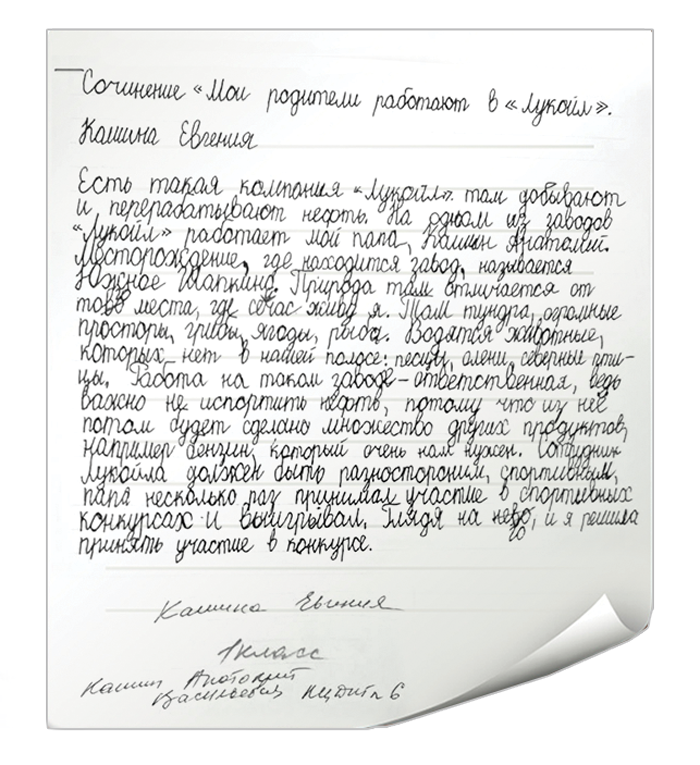 Сочинение «Мои родители работают в «Лукойл».
Кашина Евгения
Есть такая компания «Лукойл». там добывают
и перерабатывают нефть. На одном из заводов
«Лукойл» работает мой папа, Кашин Анатолий.
Месторождение, где находится завод, называется
Южное Шапкино. Природа там отличается от
того места, где сейчас живу я. Там тундра, огромные
просторы, грибы, ягоды, рыба. Водятся животные,
которых нет в нашей полосе: песцы, олени, северные пти-
цы. Работа на таком заводе - ответственная, ведь
важно не испортить нефть, потому что из неё
потом будет сделано множество других продуктов,
например бензин, который очень нам нужен. Сотрудник
Лукойла должен быть разносторонним, спортивным,
папа несколько раз принимал участие в спортивных
конкурсах и выигрывал. Глядя на него, и я решила
принять участие в конкурсе.
Кашина Евгения
1 класс
Кашин Анатолий
Васильевич